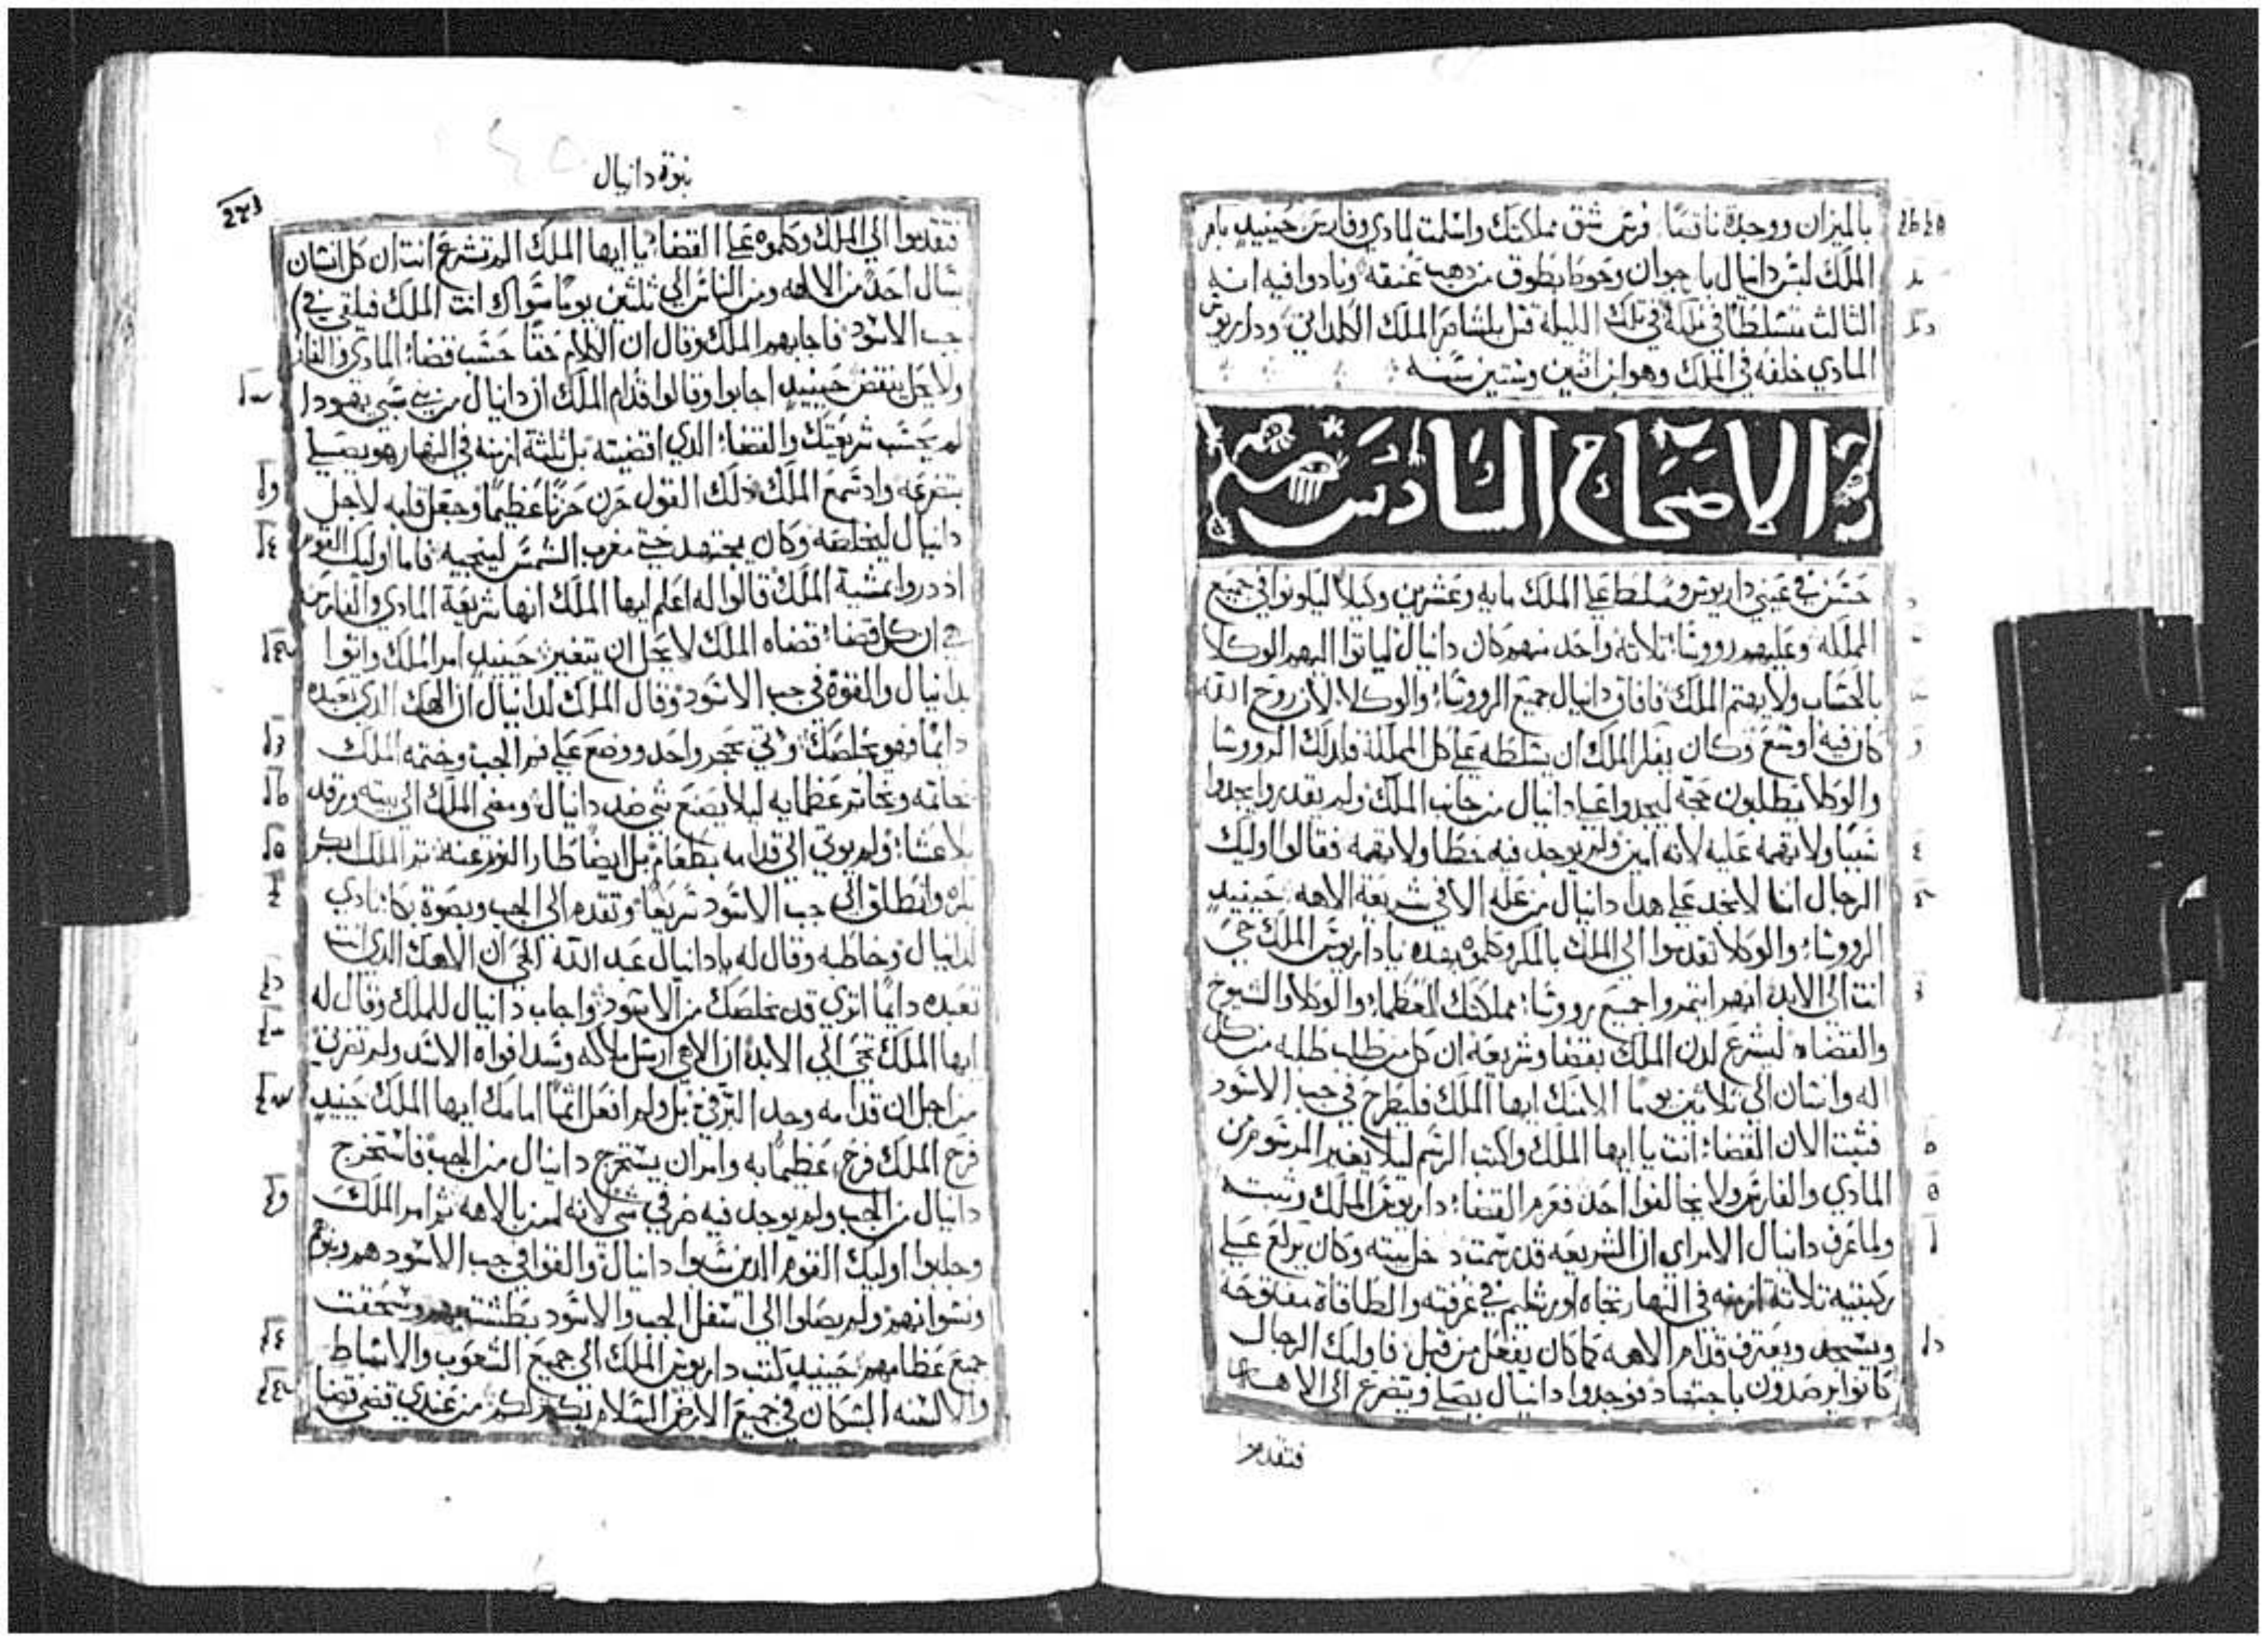 بالميزان ووجدة ناقصًا فرس شق مملكتك واسلمت لمادي وفارس حينيد بامر
الملك لبس دانيال بارجوان وحوط بطوق من دهب عنقه ونادوا فيه انه
الثالث متسلطا في ملكه في تلك الليلة قتل بلشاصر الملك الكلداني وداريوش
المادي خلفه في الملك وهو ابن اثنين وستين سنه
الاصحاح السادس
حسن في عيني داريوس وسلط علي الملك مايه وعشرين وكيلاً ليكونوا في جميع
المملكه وعليهم رووسا ثلاثه واحد منهم كان دانيال لياتوا اليهم الوكلا
بالحساب ولا يهتم الملك فافاق دانيال جميع الرووسا والوكلا لان روح الله
كان فيه اوسع وكان يفكر الملك ان يسلطه علي كل المملكة فلدلك الرووسا
والوكلا يطلبون حجة ليجدوا علي دانيال من جانب الملك ولم يقدروا يجدوا
سببًا ولا تهمه عليه لانه امين ولم يوجد فيه خطا ولا تهمه فقالوا اوليك
الرجال اننا لا نجد علي هدا دانيال من عله الا في شريعة الاهه حينيد
الرووسا والوكلا تقدموا الي الملك بالمكر وكلموه هكده يا داريوش الملك حي
انت الي الابد ايتمروا جميع رووسا مملكتك العظما والوكلا والشيوخ
والقضاه ليشرع لدن الملك بقضا وشريعه ان كل من طلب طلبه من كل
اله وانسان الي ثلاثين يومًا الا منك ايها الملك فليطرح في جب الاسود
فثبت الان القضا انت يا ايها الملك واكتب الرسم ليلا يغير المرسوم من
المادي والفارس ولا يخالفوا احد فعزم القضا داريوش الملك وثبته
ولما عرف دانيال الامر اي ان الشريعه قد رسمت دخل بيته وكان يركع علي
ركبتيه ثلاثة ازمنه في النهار تجاه اورشليم في غرفته والطاقاة مفتوحه
ويسجد ويعترف قدام الاهه كما كان يفعل من قبل فاوليك الرجال
كانوا يرصدون باجتهاد فوجدوا دانيال يصلي ويتضرع الي الاهه
فتقدموا
نبوة دانيال
فتقدموا الي الملك وكلموه علي القضا يا ايها الملك الم تشرع انت ان كل انسان
يسال احد من الالهه ومن الناس الي ثلثين يومًا سواك انت الملك فيلقي في
جب الاسود فاجابهم الملك وقال ان الكلام حقًا حسب قضا المادي والفارس
ولا يحل ينقض حينيد اجابوا وقالوا قدام الملك ان دانيال من بني سبي يهودا
لم يحسب شريعتك والقضا الدي اقضيته بل ثلثة ازمنه في النهار هو يصلي
بتضرعه واد سمع الملك دلك القول حزن حزنًا عظيمًا وجعل قلبه لاجل
دانيال ليخلصه وكان يجتهد حتي مغرب الشمس لينجيه فاما اوليك القوم
اد دروا بمشية الملك قالوا له اعلم ايها الملك انها شريعة المادي والفارس
هي ان كل قضا قضاه الملك لا يحل ان يتغير حينيد امر الملك واتوا
بدانيال والقوة في جب الاسود وقال الملك لدانيال ان الهك الدي تعبده
دايمًا فهو يخلصك واتي بحجر واحد ووضع علي فم الجب وختمه الملك
بخاتمه وبخاتم عظمايه ليلا يصنع شي ضد دانيال ومضي الملك الي بيته ورقد
بلا عشا ولم يوتي الي قدامه بطعام بل ايضًا طار النوم عنه ثم الملك بكر
بكره وانطلق الي جب الاسود سريعًا وتقدم الي الجب وبصوة بكا نادي
لدانيال وخاطبه وقال له يا دانيال عبد الله الحي ان الاهك الدي انت
تعبده دايمًا اتري قد يخلصك من الاسود واجاب دانيال للملك وقال له
ايها الملك تحي الي الابد ان الاهي ارسل ملاكه وسد افواه الاسد ولم تضرني
من اجل ان قدامه وجد البر في بل ولم افعل اثمًا امامك ايها الملك حينيد
فرح الملك فرح عظيمًا به وامر ان يستخرج دانيال من الجب فاستخرج
دانيال من الجب ولم يوجد فيه ضر في شي لانه امن بالاهه ثم امر الملك
وجلبوا اوليك القوم الدين شكوا دانيال والقوا في جب الاسود هم وبنوهم
ونسوانهم ولم يصلوا الي اسفل الجب والاسود بطشت بهم وسحقت
جميع عظامهم حينيد كتب داريوش الملك الي جميع الشعوب والاسباط
والالسنه السكان في جميع الارض السلام يكثر لكم من عندي قضي قضا